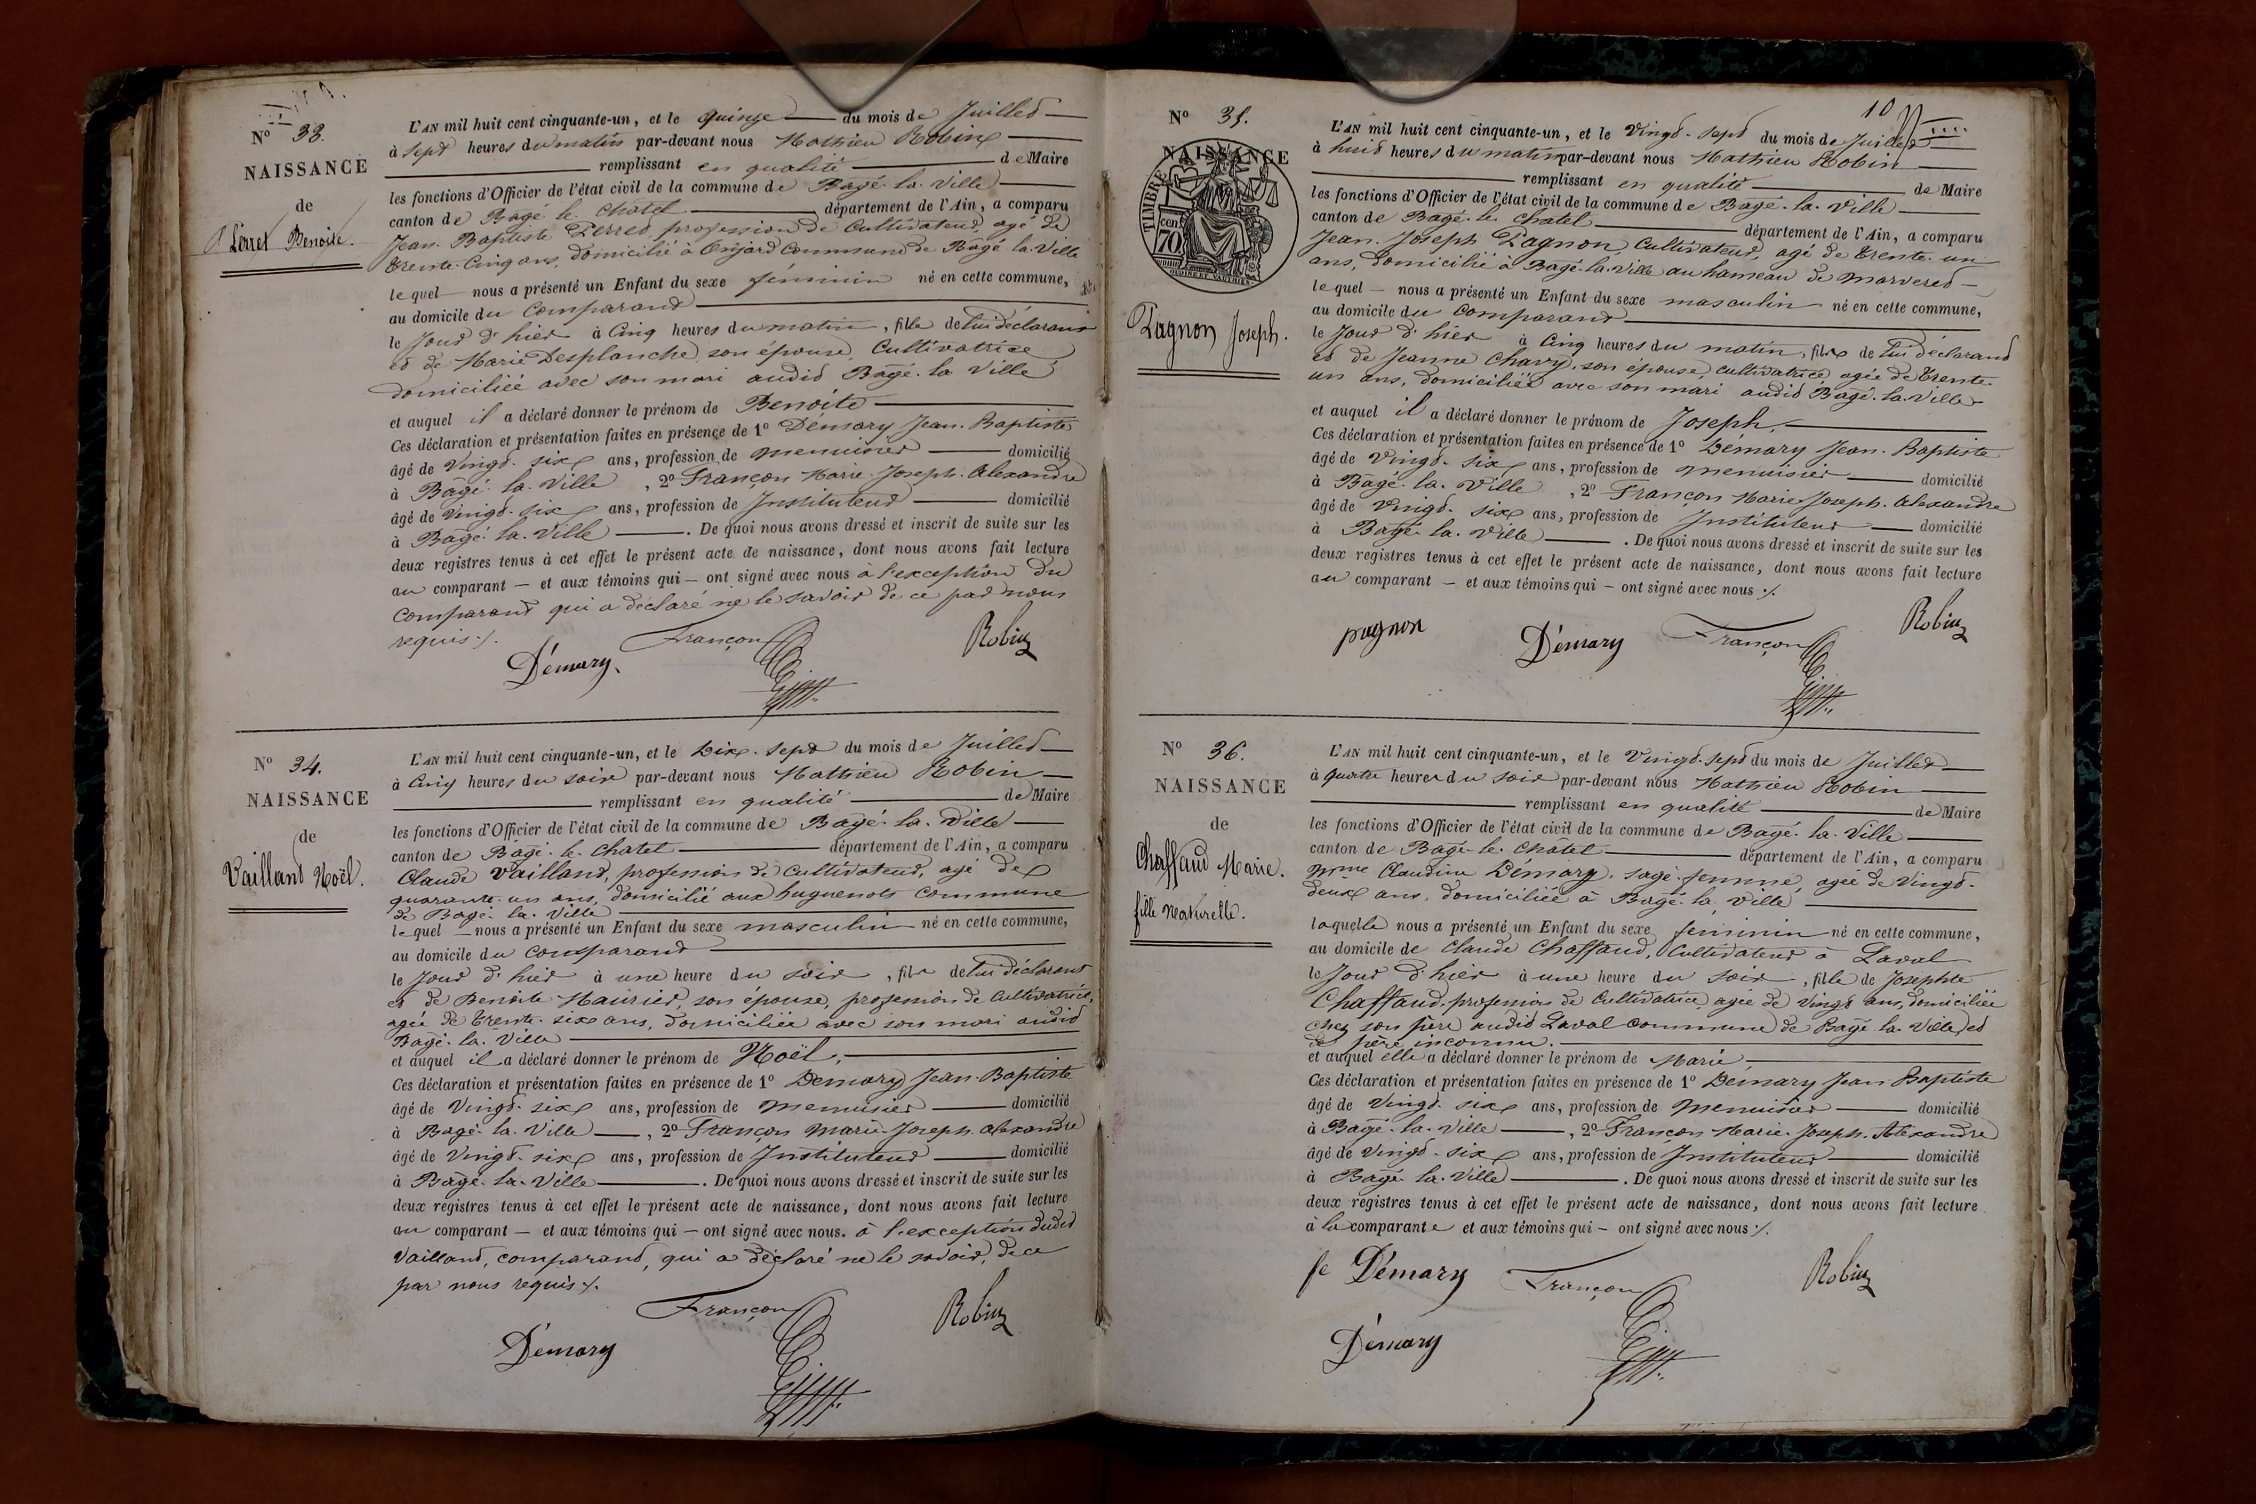 Nº 33.
NAISSANCE
de
Perret Benoite.
L'AN mil huit cent cinquante-un, et le quinze du mois de Juillet
à sept heures du matin par-devant nous Mathieu Robin
remplissant en qualité de Maire
les fonctions d'Officier de l'état civil de la commune de Bagé-la-Ville
canton de Bagé-le-Chatel département de l'Ain, a comparu
Jean-Baptiste Perret, profession de Cultivateur, agé de
trente-cinq ans, domicilié à commune de Bagé-la-Ville
lequel nous a présenté un Enfant du sexe féminin né en cette commune,
au domicile du comparant
le Jour d'hier à cinq heures du matin, fille de lui déclarant
et de Marie Desplanche, son épouse, Cultivatrice
domiciliée avec son mari audit Bagé-la-Ville
et auquel il a déclaré donner le prénom de Benoite
Ces déclaration et présentation faites en présence de 1º Démary Jean-Baptiste
âgé de Vingt-six ans, profession de menuisier domicilié
à Bagé-la-Ville, 2º Françon Marie-Joseph-Alexandre
âgé de Vingt-six ans, profession de Instituteur domicilié
à Bagé-la-Ville. De quoi nous avons dressé et inscrit de suite sur les
deux registres tenus à cet effet le présent acte de naissance, dont nous avons fait lecture
au comparant — et aux témoins qui — ont signé avec nous à l'exception du
comparant qui a déclaré ne le savoir de ce par nous
requis ./.
Démary. Françon Robin
Nº 34.
NAISSANCE
de
Vaillant Noël.
L'AN mil huit cent cinquante-un, et le Dix-sept du mois de Juillet
à Cinq heures du soir par-devant nous Mathieu Robin
remplissant en qualité de Maire
les fonctions d'Officier de l'état civil de la commune de Bagé-la-Ville
canton de Bagé-le-Chatel département de l'Ain, a comparu
Claude Vaillant, profession de Cultivateur, agé de
quarante-un ans, domicilié aux huguenots commune
de Bagé-la-Ville
lequel nous a présenté un Enfant du sexe masculin né en cette commune,
au domicile du comparant
le Jour d'hier à une heure du soir, fils de lui déclarant
et de Benoite Maurier, son épouse, profession de Cultivatrice,
agée de trente-six ans, domiciliée avec son mari audit
Bagé-la-Ville
et auquel il a déclaré donner le prénom de Noël,
Ces déclaration et présentation faites en présence de 1º Démary Jean-Baptiste
âgé de Vingt-six ans, profession de menuisier domicilié
à Bagé-la-Ville, 2º Françon Marie-Joseph-Alexandre
âgé de Vingt-six ans, profession de Instituteur domicilié
à Bagé-la-Ville. De quoi nous avons dressé et inscrit de suite sur les
deux registres tenus à cet effet le présent acte de naissance, dont nous avons fait lecture
au comparant — et aux témoins qui — ont signé avec nous. à l'exception dudit
Vaillant, comparant, qui a déclaré ne le savoir, de ce
par nous requis ./.
Démary Françon Robin
10
Nº 35.
NAISSANCE
TIMBRE
70 cen
Pagnon Joseph.
L'AN mil huit cent cinquante-un, et le Vingt-sept du mois de Juillet
à huit heures du matin par-devant nous Mathieu Robin
remplissant en qualité de Maire
les fonctions d'Officier de l'état civil de la commune de Bagé-la-Ville
canton de Bagé-le-Chatel département de l'Ain, a comparu
Jean-Joseph Pagnon, Cultivateur, agé de trente-un
ans, domicilié à Bagé-la-Ville au hameau de
lequel — nous a présenté un Enfant du sexe masculin né en cette commune,
au domicile du comparant
le Jour d'hier à Cinq heures du matin, fils de lui déclarant
et de Jeanne Chavy, son épouse, cultivatrice agée de trente-
un ans, domiciliée avec son mari audit Bagé-la-Ville
et auquel il a déclaré donner le prénom de Joseph,
Ces déclaration et présentation faites en présence de 1º Démary Jean-Baptiste
âgé de Vingt-six ans, profession de menuisier domicilié
à Bagé-la-Ville, 2º Françon Marie-Joseph-Alexandre
âgé de Vingt-six ans, profession de Instituteur domicilié
à Bagé-la-Ville. De quoi nous avons dressé et inscrit de suite sur les
deux registres tenus à cet effet le présent acte de naissance, dont nous avons fait lecture
au comparant — et aux témoins qui — ont signé avec nous ./.
pagnon Démary Françon Robin
Nº 36.
NAISSANCE
de
Chaffaud Marie.
fille Naturelle.
L'AN mil huit cent cinquante-un, et le Vingt-sept du mois de Juillet
à quatre heures du soir par-devant nous Mathieu Robin
remplissant en qualité de Maire
les fonctions d'Officier de l'état civil de la commune de Bagé-la-Ville
canton de Bagé-le-Chatel département de l'Ain, a comparu
Mme Claudine Démary, sage-femme, agée de Vingt-
deux ans, domiciliée à Bagé-la-Ville
laquelle nous a présenté un Enfant du sexe féminin né en cette commune,
au domicile de Claude Chaffaud, Cultivateur à Laval
le Jour d'hier à une heure du soir, fille de Josephte
Chaffaud, profession de Cultivatrice agée de Vingt ans, domiciliée
chez son père audit Laval commune de Bagé-la-Ville, et
de père inconnu.
et auquel elle a déclaré donner le prénom de Marie
Ces déclaration et présentation faites en présence de 1º Démary Jean Baptiste
âgé de Vingt-six ans, profession de Menuisier domicilié
à Bagé-la-Ville, 2º Françon Marie-Joseph-Alexandre
âgé de Vingt-six ans, profession de Instituteur domicilié
à Bagé-la-Ville. De quoi nous avons dressé et inscrit de suite sur les
deux registres tenus à cet effet le présent acte de naissance, dont nous avons fait lecture
à la comparante et aux témoins qui — ont signé avec nous ./.
fe Démary Françon Robin
Démary